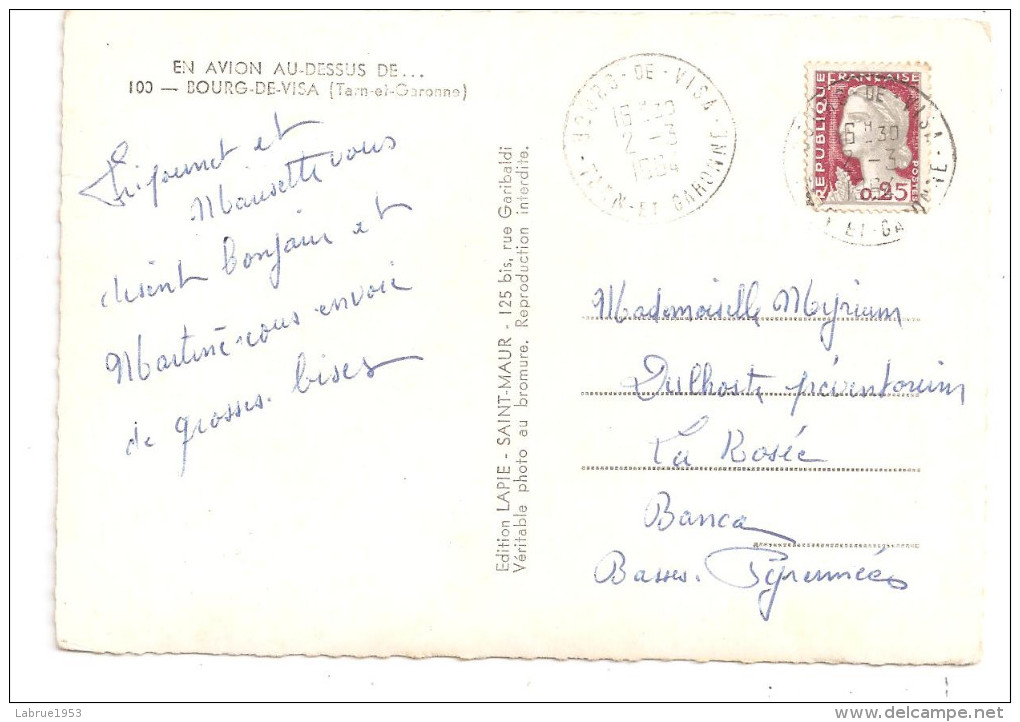 EN AVION AU-DESSUS DE...
100 — BOURG-DE-VISA (Tarn-et-Garonne)
et
vous
disent bonjour et
Martine vous envoie
de grosses bises
Edition LAPIE - SAINT-MAUR - 125 bis, rue Garibaldi
Véritable photo au bromure. Reproduction interdite.
BOURG-DE-VISA
16 H 30
2 - 3
1964
TARN-ET-GARONNE
REPUBLIQUE FRANÇAISE
POSTES
0,25
Mademoiselle Myriam
Dulhoste préventorium
La Rosée
Banca
Basses-Pyrennées
Labrue1953